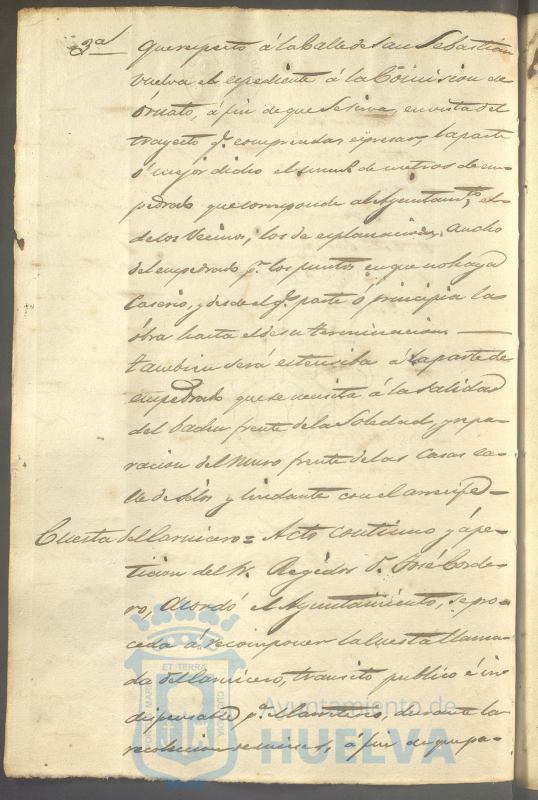 3ª Que respecto á la Calle de San Sebastian
vuelva el expediente á la Comision de
órnato, á fin de que se sirva, en vista del
trayecto q.e comprenda, espresar, la parte
ó mejor dicho el num.º de metros de em-
pedrado que corresponde al Ayuntam.to, el
de los Vecinos, los de esplanacion, Ancho
del empedrado p.r los puntos en que no haya
Caserio, y desde el q.e parte ó principia la
óbra hasta el de su terminacion
tambien será estensiba á la parte de
empedrado que se necesita á la salida
del badén frente de la Soledad, y repa-
racion del Muro frente de las Casas ca-
lle de y lindante con el arrecife =
Cuesta del Carnicero = Acto continuo y á pe-
ticion del Sr. Regidor D. José Corde-
ro, Acordó el Ayuntamiento, se pro-
ceda á recomponer la Cuesta llama-
da del Carnicero, transito publico é in-
dispensable p.a durante la
recoleccion de mieses, á fin de q.e
ET TERRA
Ayuntamiento de
HUELVA